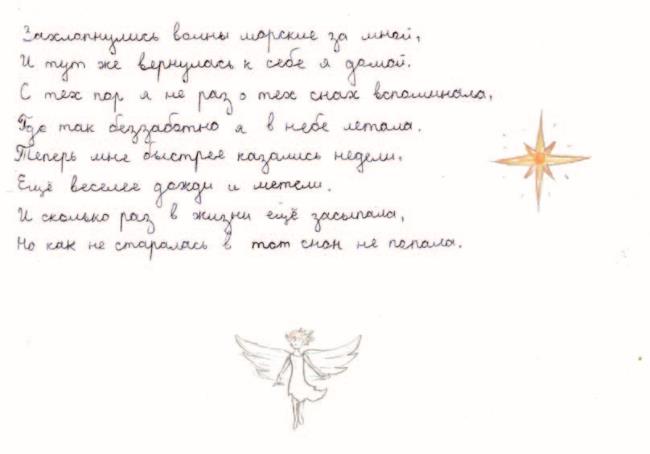 Захлопнулись волны морские за мной,
И тут же вернулась к себе я домой.
С тех пор я не раз о тех снах вспоминала,
Где так беззаботно я в небе летала.
Теперь мне быстрее казались недели,
Ещё веселее дожди и метели.
И сколько раз в жизни ещё засыпала,
Но как не старалась в тот снон не попала.